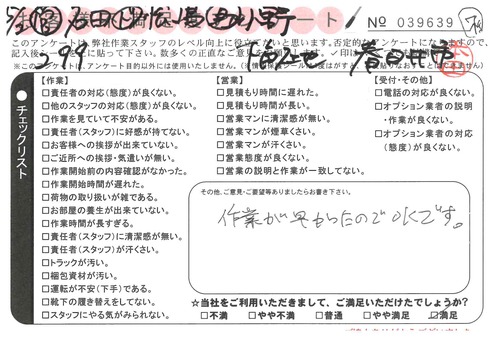 アンケート
No 039639
このアンケートは、弊社作業スタッフのレベル向上に役立てないと思います。否定的なアンケートになりますので、
【作業】
□責任者の対応(態度)が良くない。
□他のスタッフの対応(態度)が良くない。
□作業を見ていて不安がある。
□責任者(スタッフ)に好感が持てない。
□お客様への挨拶が出来ていない。
□ご近所への挨拶・気遣いが無い。
□作業開始前の内容確認がなかった。
□作業開始時間が遅れた。
□荷物の取り扱いが雑である。
□お部屋の養生が出来ていない。
□作業時間が長すぎる。
□責任者(スタッフ)に清潔感が無い。
□責任者(スタッフ)が汗くさい。
□トラックが汚い。
□梱包資材が汚い。
□運転が不安(下手)である。
□靴下の履き替えをしてない。
□スタッフにやる気がみられない。
【営業】
□見積もり時間に遅れた。
□見積もり時間が長い。
□営業マンに清潔感が無い。
□営業マンが煙草くさい。
□営業マンが汗くさい。
□営業態度が良くない。
□営業の説明と作業が一致してない。
【受付・その他】
□電話の対応が良くない。
□オプション業者の説明
・作業が良くない。
□オプション業者の対応
(態度)が良くない。
チェックリスト
その他、ご意見・ご要望等ありましたらお書き下さい。
作業が早かったのでOKです。
☆当社をご利用いただきまして、ご満足いただけたでしょうか?
□不満 □やや不満 □普通 □やや満足 ☑満足